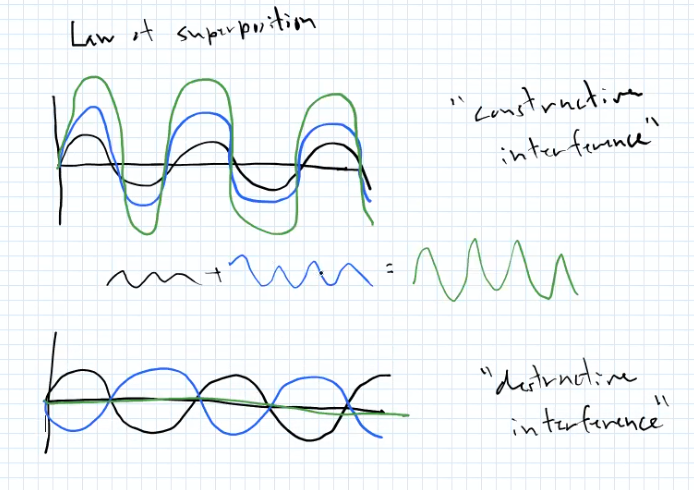 Law of superposition
"constructive
interference"
+ =
"destructive
interference"